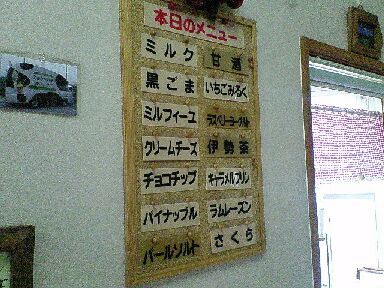 本日のメニュー
ミルク
甘酒
黒ごま
いちごみるく
ミルフィーユ
ラズベリーヨーグルト
クリームチーズ
伊勢茶
チョコチップ
キャラメルプリン
パイナップル
ラムレーズン
パールソルト
さくら